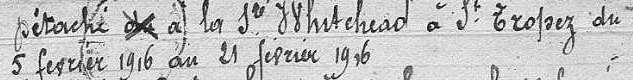 détaché à la Sté Whitehead à St Tropez du
5 fevrier 1916 au 21 février 1916